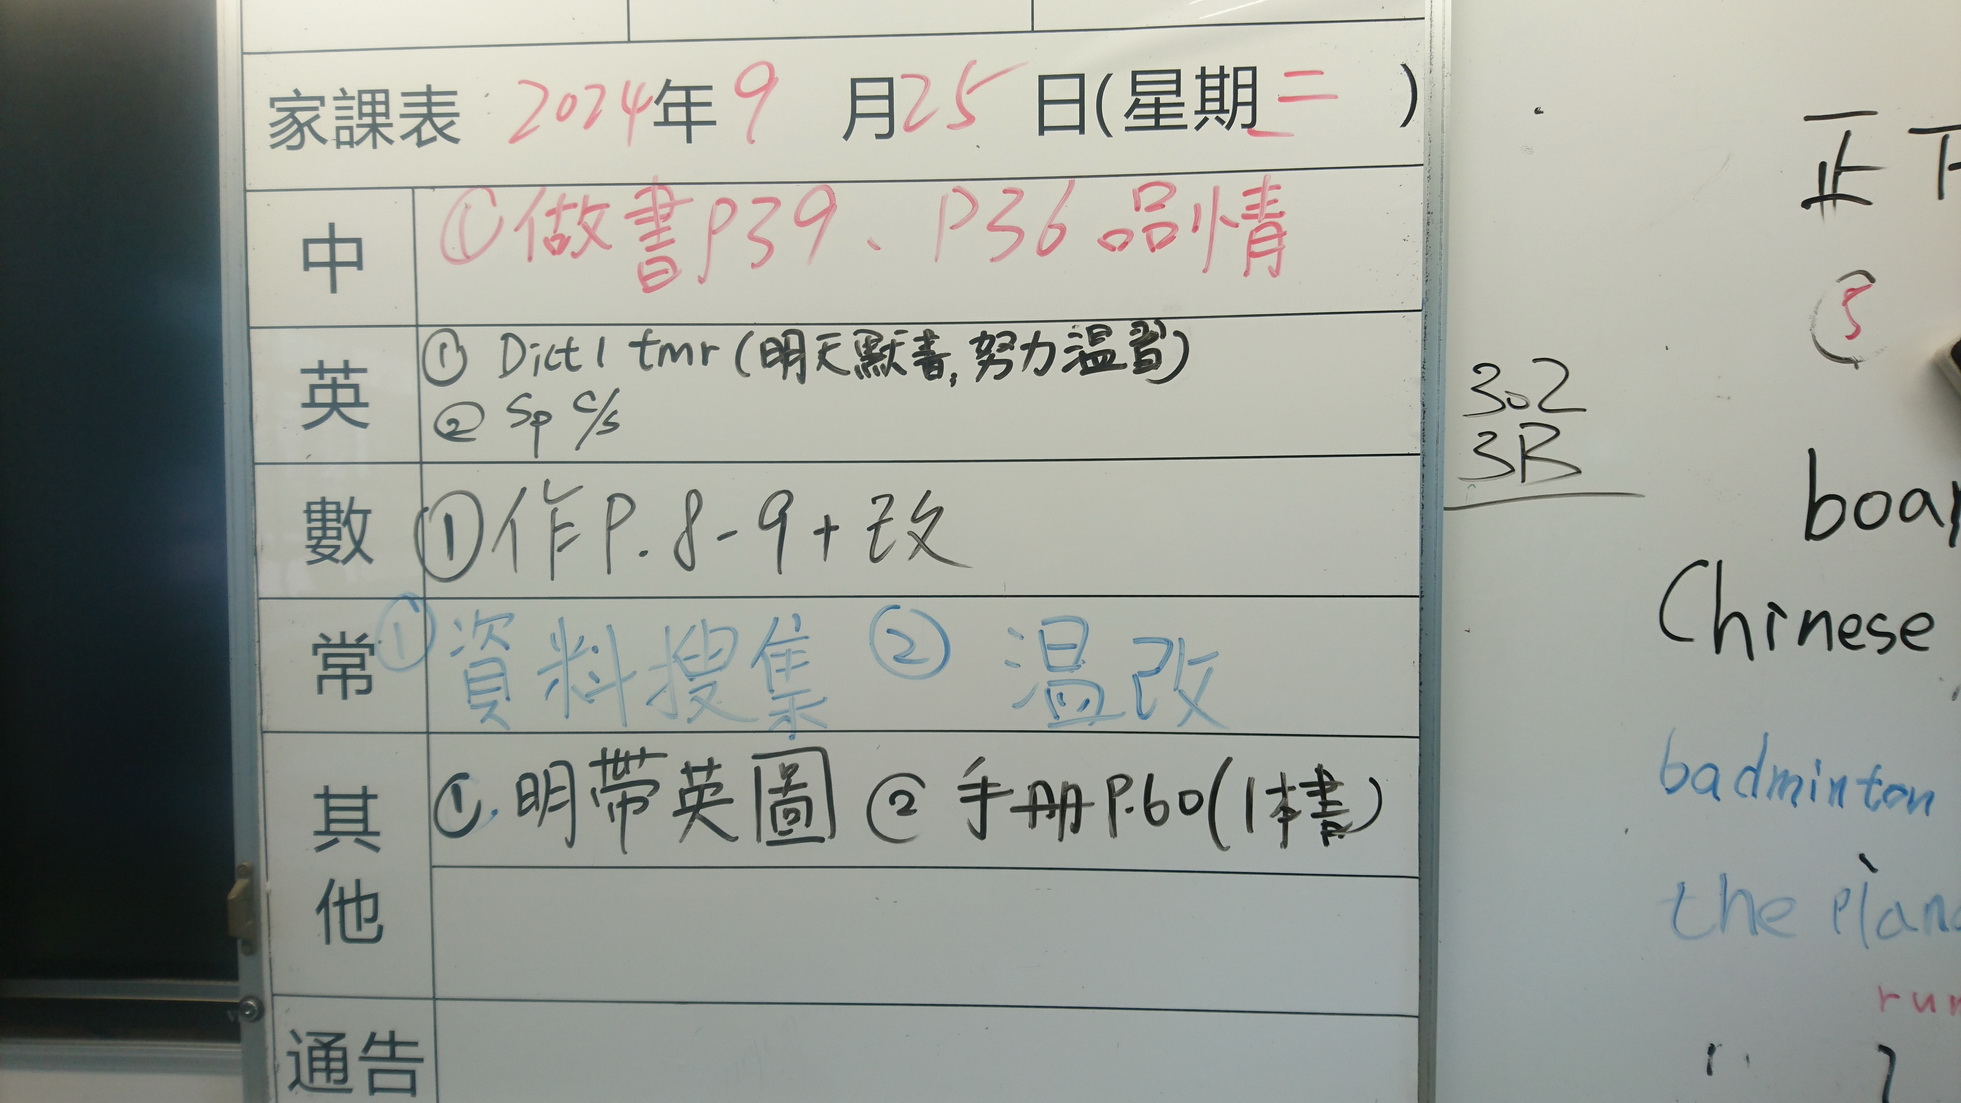 家課表 2024年9月25日(星期三)
中 ①做書P39、P36品情
英 ① Dict1 tmr (明天默書,努力溫習)
② Sp c/s
數 ①作P.8-9+改
常 ①資料搜集 ② 溫改
其他 ①.明帶英圖 ② 手冊P.60(1本書)
通告
302
3B
正下
5
boar
Chinese
badminton
the plan
run